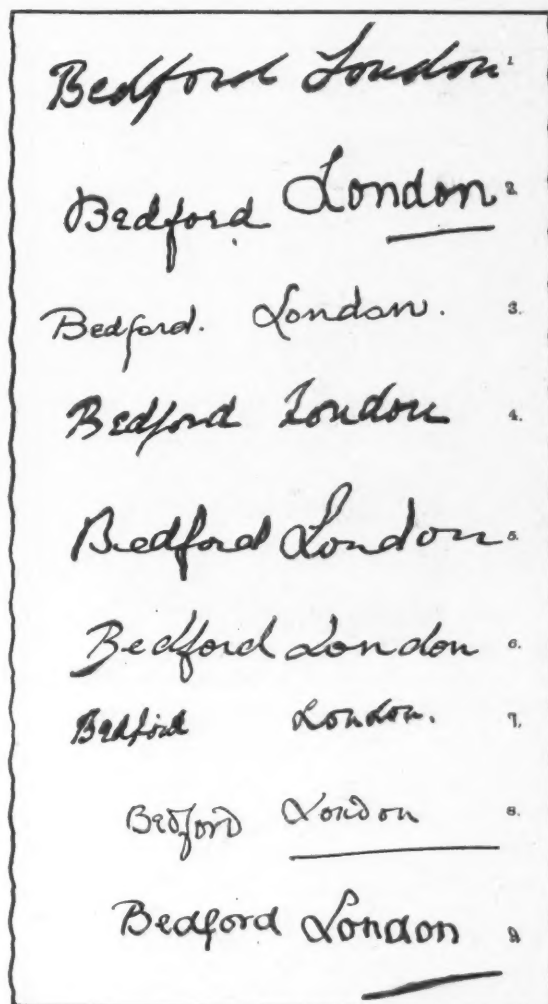 Bedford London 1
Bedford London 2.
Bedford. London. 3.
Bedford London 4.
Bedford London 5.
Bedford London 6.
Bedford London. 7.
Bedford London 8.
Bedford London 9